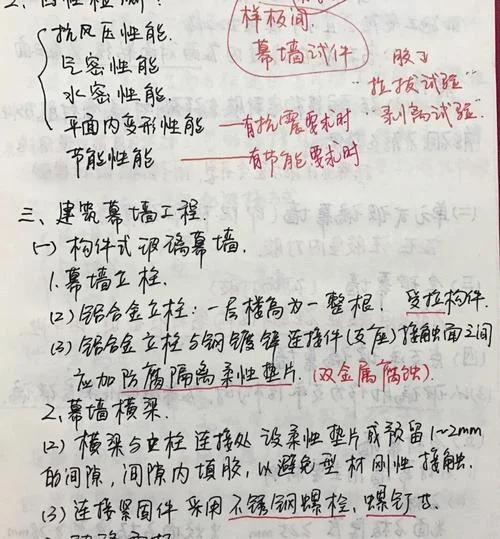 抗风压性能.
气密性能
水密性能.
平面内变形性能 — 有抗震要求时
节能性能 — 有节能要求时
样板间
幕墙试件
胶了
"拉拔试验"
"剥离试验"
三、建筑幕墙工程.
(一) 构件式玻璃幕墙.
1.幕墙立柱.
(2) 铝合金立柱：一层楼高为一整根. 受拉构件.
(3) 铝合金立柱与钢镀锌连接件(支座)接触面之间
应加防腐隔离柔性垫片. (双金属腐蚀).
2.幕墙横梁.
(2) 横梁与立柱连接处设柔性垫片或预留1~2mm
的间隙,间隙内填胶,以避免型材刚性接触.
(3) 连接紧固件采用不锈钢螺栓、螺钉等.